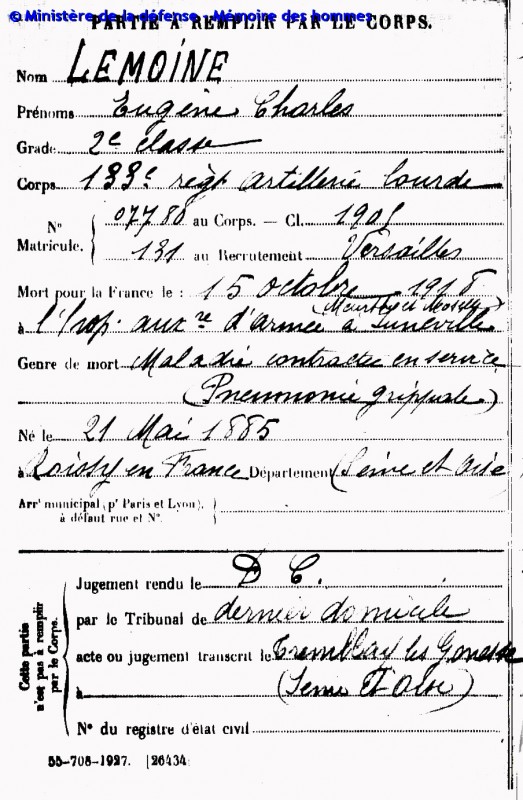 © Ministère de la défense - Mémoire des hommes
PARTIE À REMPLIR PAR LE CORPS.
Nom LEMOINE
Prénoms Eugène Charles
Grade 2e classe
Corps 133e régt artillerie lourde
N° Matricule. 07780 au Corps. — Cl. 1905
131 au Recrutement Versailles
Mort pour la France le : 15 octobre 1918
(Meurthe et Moselle)
à l'hop. auxre d'armée à Lunéville
Genre de mort Maladie contractée en service
(Pneumonie grippale)
Né le 21 Mai 1885
à Roissy en France Département (Seine et Oise)
Arrt municipal (pr Paris et Lyon),
à défaut rue et N°.
Cette partie n'est pas à remplir par le Corps.
Jugement rendu le D C.
par le Tribunal de dernier domicile
acte ou jugement transcrit le Tremblay les Gonesse
à (Seine et Oise)
N° du registre d'état civil
55-708-1927. [26434